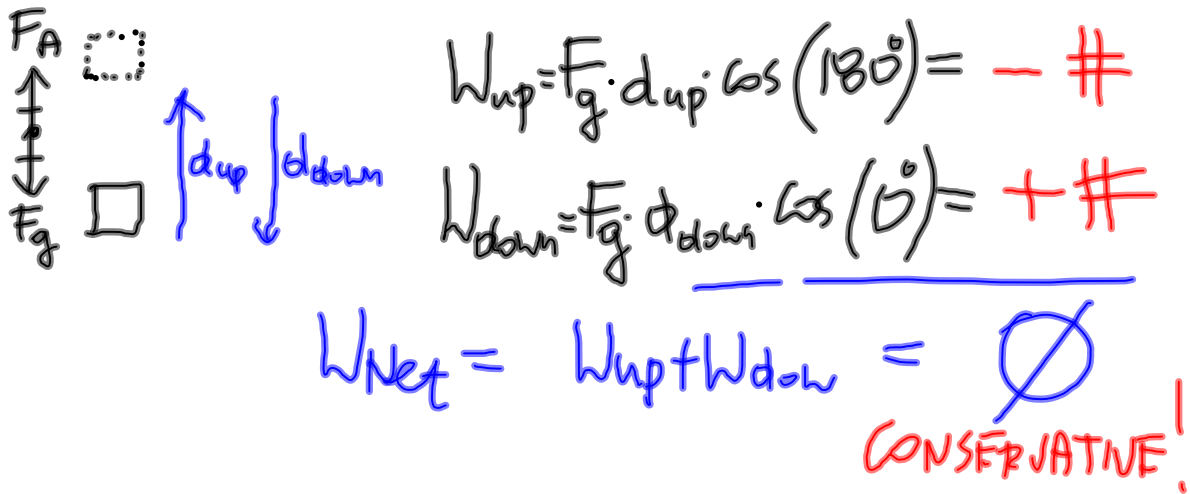 F_A
F_g
d_up
d_down
W_up = F_g · d_up · cos(180°) = - #
W_down = F_g · d_down · cos(0°) = + #
W_Net = W_up + W_dow = Ø
CONSERVATIVE!